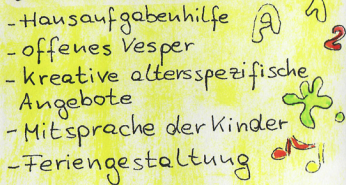 - Hausaufgabenhilfe
- offenes Vesper
- kreative altersspezifische
Angebote
- Mitsprache der Kinder
- Feriengestaltung
A
2